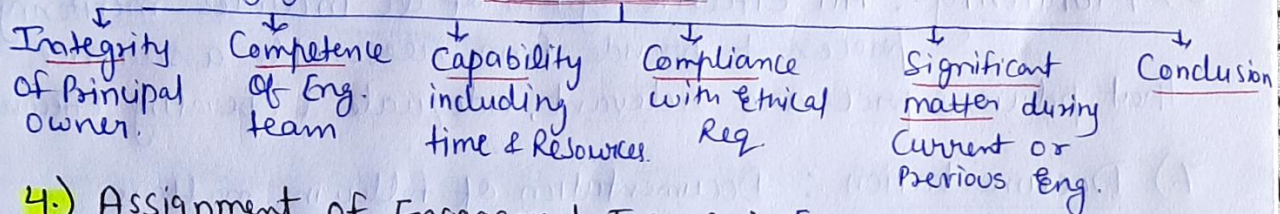 Integrity
of Principal
owner.
Competence
of Eng.
team
Capability
including
time & Resources.
Compliance
with Ethical
Req.
Significant
matter during
Current or
Previous Eng.
Conclusion
4.) Assignment of